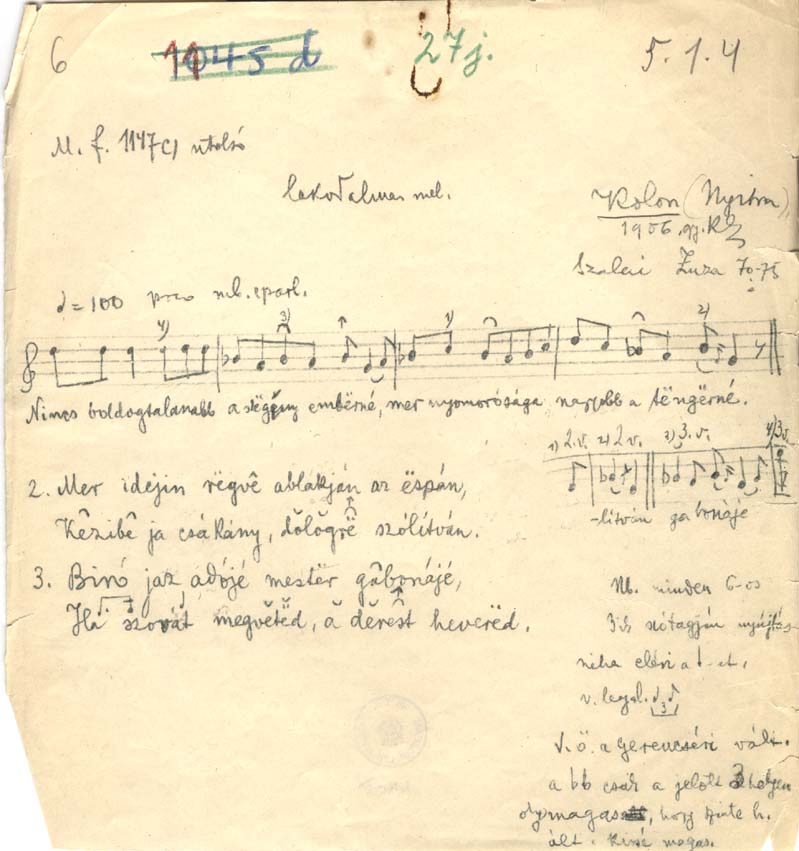 6 1045 d 27j. 5.1.4
M. f. 1147c) utolsó
lakodalmas mel.
Kolon (Nyitra)
1906, gy. KZ
Szalai Zuza 70-75
♩=100 poco rub. parl.
4) 3) 1) 2)
Nincs boldogtalanabb a szëgény embërné, mer nyomorósága nagyobb a tëngërné.
1) 2.v. 2) 2 v. 3) 3. v. 4) 3v.
-lítván gabonájé
2. Mer idejin rëgvê ablakján az ëspán,
Kêzibê ja csákány, dŏlŏgrë szólítván.
3. Biró jaz adójé mestër gâbonájé,
Ha szovát megvĕtĕd, ă dĕrĕst heverëd.
Nb. minden 6-os
3.ik szótagján nyújtás
néha eléri a ♩-et,
v. legal. 3
V.ö. a gerencséri vált.
a bb csak a jelölt 3 helyen
oly magas, hogy szinte h.
ált. kissé magas.